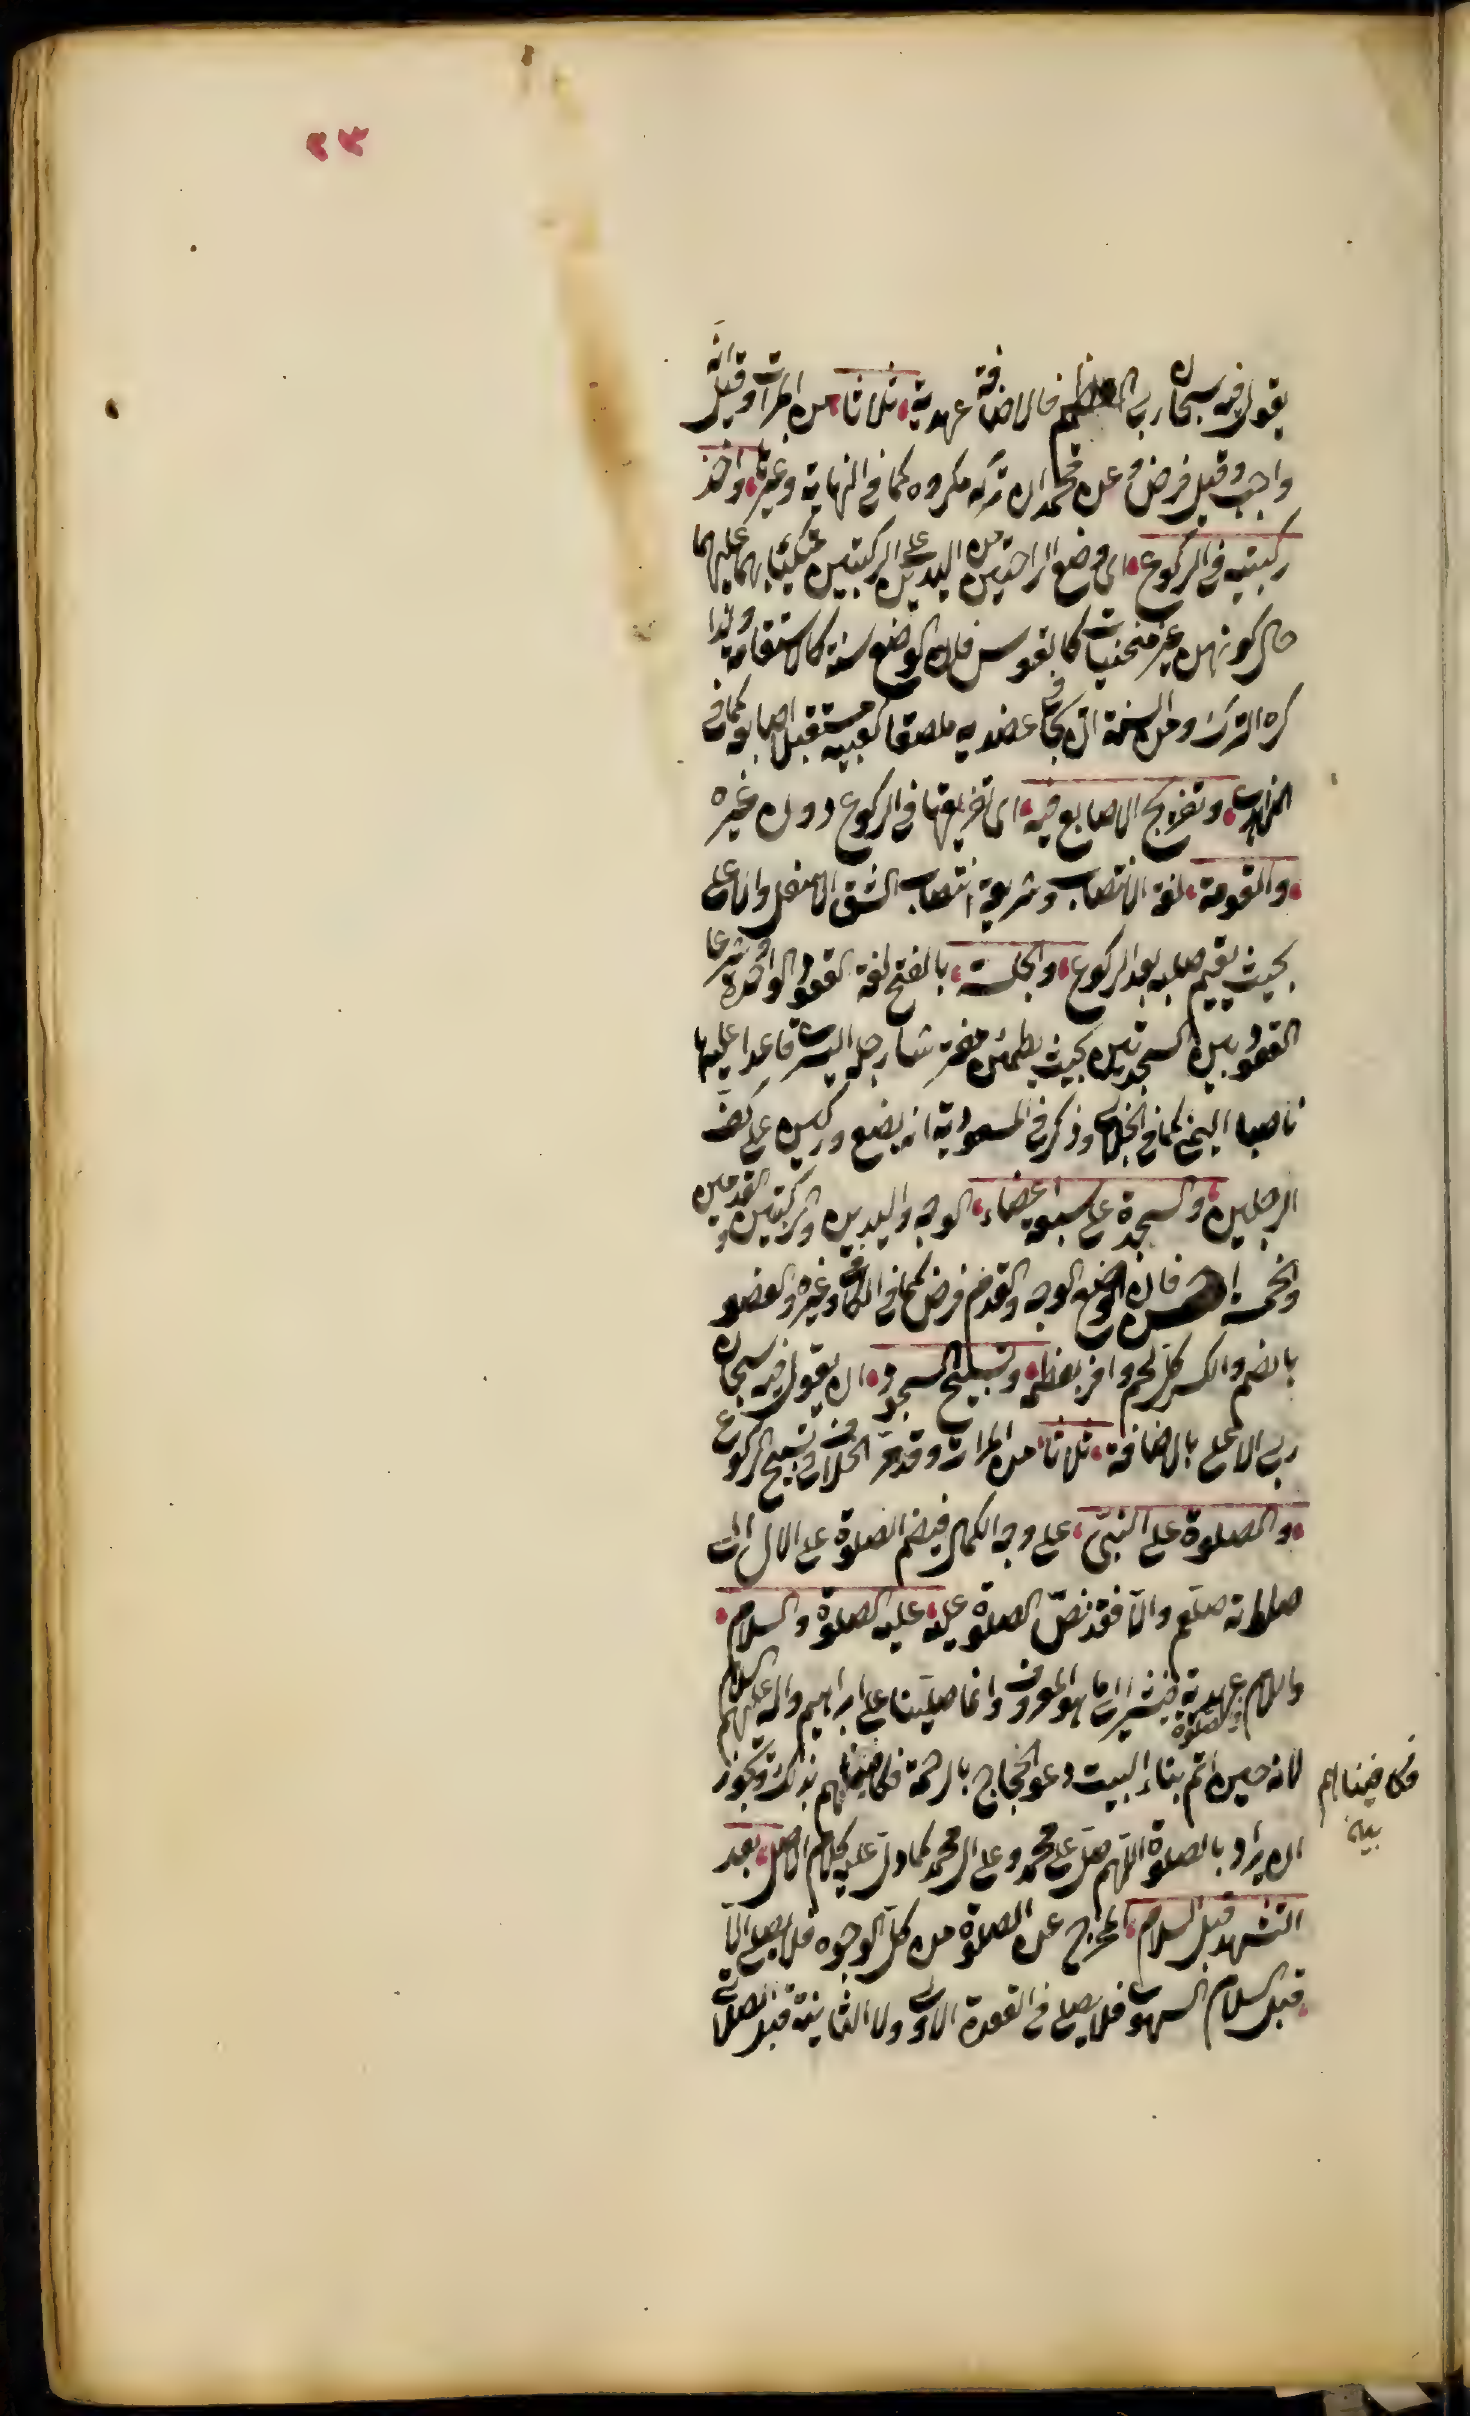 ٢٣
يقول فيه سبحان ربي العظيم فالاضافة عهدية ثلاثا من المرات وقيل انه
واجب وقيل فرض وعن محمد ان تركه مكروه كما في النهاية وغيرها واخذ
ركبتيه في الركوع اى وضع الراحتين من اليدين على الركبتين متكئا بهما عليهما
حال كونهن غير منحنيات كالقوس فان الوضع سنة كالاستقامة ولذا
كره الترك ومن السنة ان يجافي عضديه ملصقا كعبيه مستقبلا اصابعه كما في
الزاهدى وتفريج الاصابع فيه اى تفريقها في الركوع دون غيره
والقومة لغة الانتصاب وشريعة انتصاب الشق الاسفل والاعلى
بحيث يقيم صلبه بعد الركوع والجلسة بالفتح لغة القعود الواحدة وشرعا
القعود بين السجدتين بحيث يطمئن مفترشا رجله اليسرى قاعدا عليها
ناصبا اليمنى كما في الجلابى وذكر في المسعودية انه يضع وركيه على كف
الرجلين والسجدة على سبعة اعضاء الوجه واليدين والركبتين والقدمين
فان وضع الوجه والقدم فرض كما في الكافى وغيره والعضو
بالضم والكسر كل لحم وافر بعظمه وتسبيح السجود ان يقول فيه سبحان
ربي الاعلى بالاضافة ثلاثا من المرات وقد مر الخلاف في تسبيح الركوع
والصلوة على النبى على وجه الكمال فيضم الصلوة على الال الى
صلوته صلعم والا فقد نص الصلوة عليه عليه الصلوة والسلام
واللام عهدية فيشير الى ما هو المعروف وانما صلينا على ابراهيم واله عليهم الصلوة والسلام
لانه حين اتم بناء البيت دعو الحجاج بالرحمة بذلك ويجوز
ان يراد بالصلوة اللهم صل على محمد وعلى ال محمد كما دل عليه كلام الاصل بعد
التشهد قبل السلام المخرج عن الصلوة من كل الوجوه فلا يصلى الا
قبل السلام السهوى فلا يصلى في القعدة الاولى ولا الثانية قبل الصلاتى